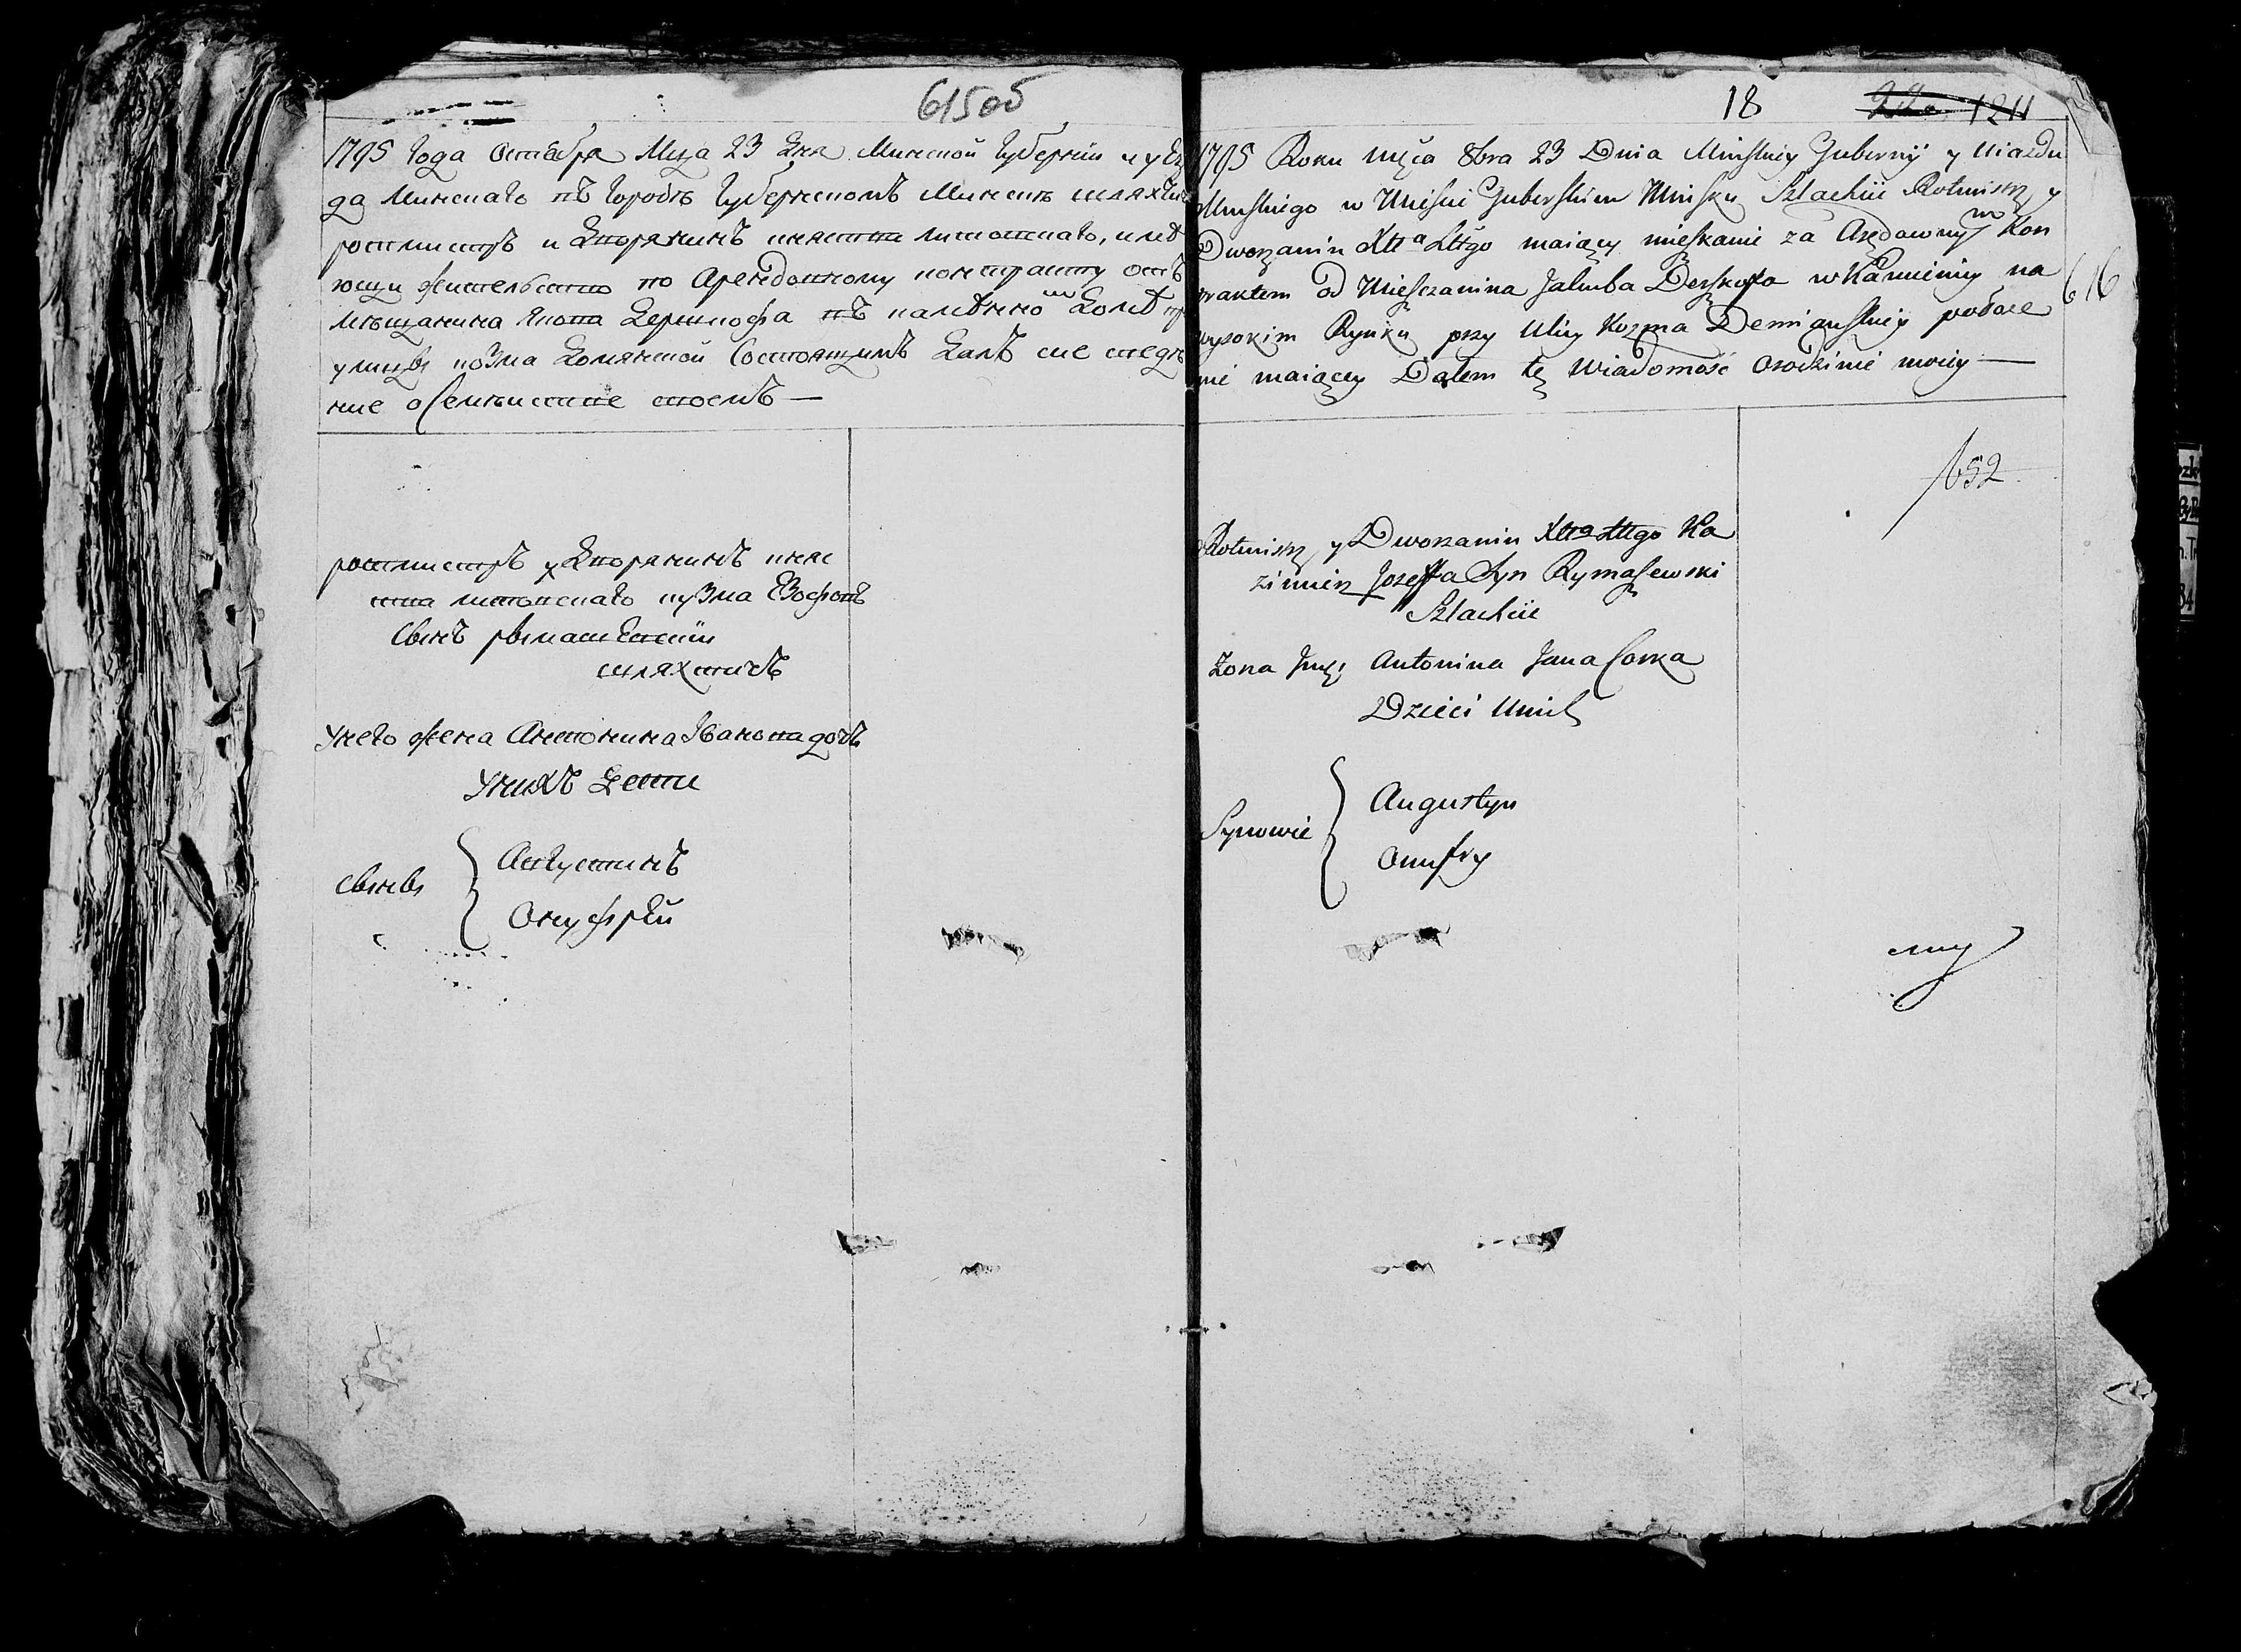 615об
1795 года Октебря Мца 23 Дня Минской губернии и уез
да Минскаго въ городѣ губернскомъ Минскѣ шляхтич
ротмистръ и Дворянинъ княства литовскаго, имѣ
ющи жительство по Арендовному контракту отъ
мѣщанина Якова Дершкофа въ каменно Доме пр
улицы козма Домянской состоящимъ Далъ сие сведѣ
ние о семѣистве своемъ —
ротмистръ у Дворянинъ княс
ства литовскаго кузма Езофовъ
сынъ рымашевский
шляхтичъ
у него жена Антонина Иванова дочь
у нихъ Дети
сыны
Августинъ
Онуфрей
18 1211
1795 Roku Mca 8bra 23 Dnia Minskiey Gubernij y Uiazdu
Minskiego w Miescie Guberskim Minsku Szlachcic Rotmistrz y
Dworzanin Xttwa Littgo maiący mieszkanie za Arędawnym Kon
traktem od Mieszczanina Jakuba Derszkoffa w Kamienicy na
wysokim Rynku przy Ulicy Kozma Demianskiey podobe
nie maiącey Dałem tę Wiadomość o rodzinie moiey —
616
652
Rotmistrz y Dworzanin Xttwa Littgo Ka
zimierz Jozeffa Syn Rymaszewski
Szlachcic
Żona Jmci Antonina Jana Corka
Dzieci Unich
Synowie
Augustyn
Onufry